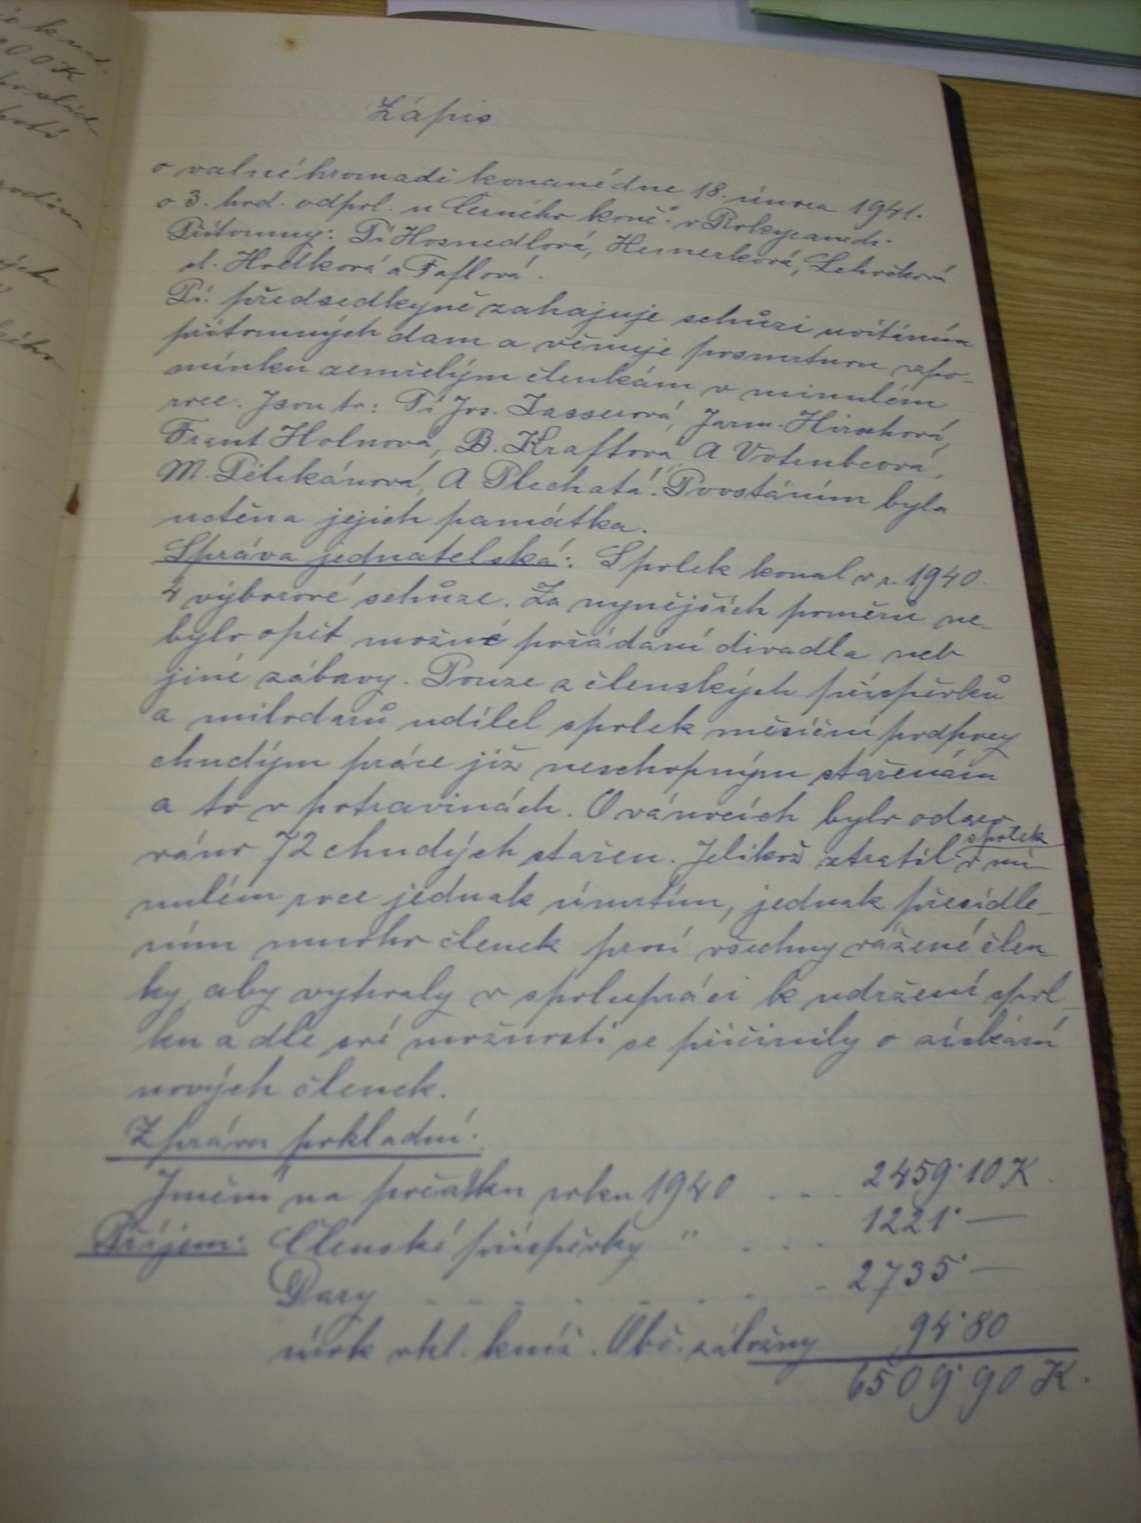 Zápis
o valné hromadě konané dne 18. února 1941.
o 3. hod. odpol. u Černého koně v Rokycanech.
Přítomny: Pí Hosnedlová, Hemerková, Lehečková
sl. Hodková a Faflová.
Pí. předsedkyně zahajuje schůzi uvítáním
přítomných dam a věnuje posmrtnou vzpo-
mínku zemřelým členkám v minulém
roce. Jsou to: Pí Jos. Jarm. Hirschová,
Frant Holnová, B. Kraftová, A Votrubcová,
M. Pelikánová, A Plechatá. Povstáním byla
uctěna jejich památka.
Správa jednatelská: Spolek konal v r. 1940.
4 výborové schůze. Za nynějších poměrů ne-
bylo opět možné pořádání divadla neb
jiné zábavy. Pouze z členských příspěvků
a milodarů udílel spolek měsíční podpory
chudým práce již neschopným stařenám
a to v potravinách. O vánocích bylo podaro-
váno 72 chudých stařen. Jelikož ztratil spolek v mi-
nulém roce jednak úmrtím, jednak přesídle-
ním mnoho členek prosí všechny vážené člen-
ky, aby vytrvaly v spolupráci k udržení spol-
ku a dle své možnosti se přičinily o získání
nových členek.
Zpráva pokladní:
Jmění na počátku roku 1940 . . . 2459·10 K.
Příjem: Členské příspěvky " . . . 1221·—
Dary . . . . . . . . 2735·—
úrok vkl. kniž. Obč. záložny 94·80
6509·90 K.